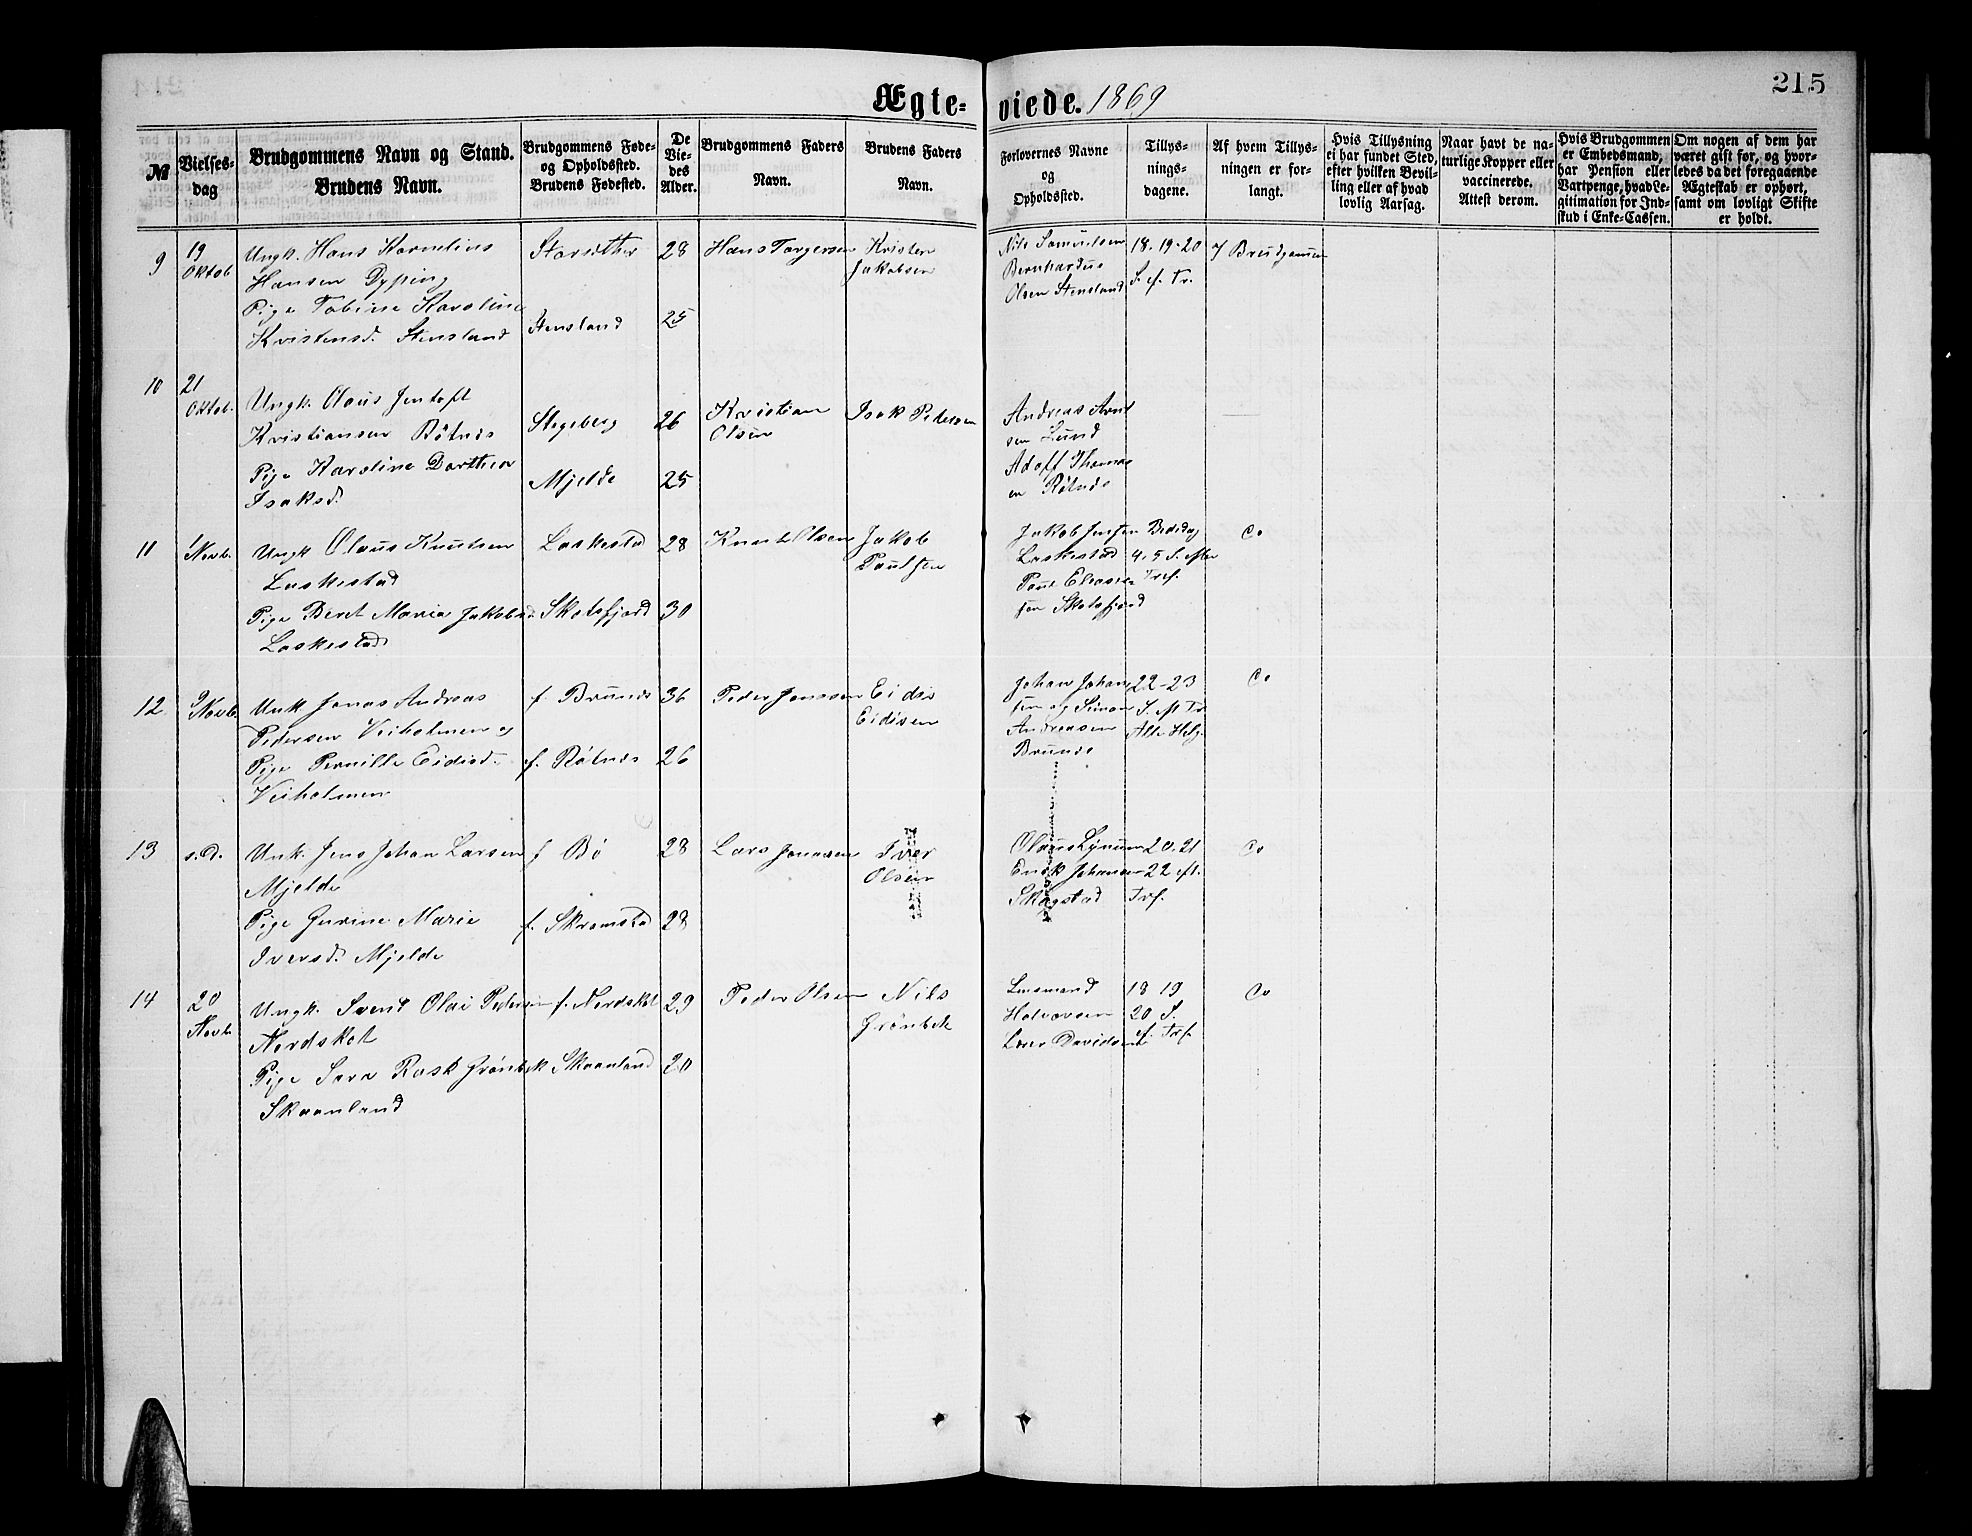 215
Ægte-
viede. 1869
№
Vielses-
dag
Brudgommens Navn og Stand.
Brudens Navn.
Brudgommens Føde-
og Opholdssted.
Brudens Fødested.
De
Vie-
des
Alder.
Brudgommens Faders
Navn.
Brudens Faders
Navn.
Forlovernes Navne
og
Opholdssted.
Tillys-
nings-
dagene.
Af hvem Tillys-
ningen er for-
langt.
Hvis Tillysning
ei har fundet Sted,
efter hvilken Bevil-
ling eller af hvad
lovlig Aarsag.
Naar havt de na-
turlige Kopper eller
vaccinerede.
Attest derom.
Hvis Brudgommen
er Embedsmand,
har Pension eller
Vartpenge, hvad Le-
gitimation for Ind-
skud i Enke-Cassen.
Om nogen af dem har
været gift før, og hvor-
ledes da det foregaaende
Ægteskab er ophørt,
samt om lovligt Skifte
er holdt.
9
19
Oktob
Ungk. Hans Kornelius
Hansen Dyping
Pige Tobine Karoline
Kristensd. Stensland
Stensland
28
25
Hans Torgersen
Kristen
Jakobsen
Nils Samuelsen
Bernhardus
Olsen Stensland
18-19-20
S. ef. Tr.
Brudgommen
10
21
Oktob.
Ungk. Olaus Jentoft
Kristiansen Røtnes
Pige Karoline Dorthea
Isaksd.
Stegeberg
Mjelde
26
25
Kristian
Olsen
Isak Pedersen
Andreas Arnt
sen Lund
Adolf Thomas
en Røtnes
11
1
Novb.
Ungk Olaus Knutsen
Laskestad
Pige Beret Maria Jakobsd
Laskestad
Laskestad
Skotsfjord
28
30
Knut Olsen
Jakob
Paulsen
Jakob Jensen
Laskestad
Paul Elias
sen Skotsfjord
Bededag
4. 5 S. efter
Tref.
Co
12
9
Novb.
Unk Jonas Andreas
Pedersen Veiholmen og
Pige Pernille Eidisd.
Veiholmen
f. Brunes
f. Røtnes
36
26
Peder Jonssen
Eidis
Eidisen
Johan Johan
sen og Simon
Andreasen
Brunes
22-23
S. ef Tr
Alle Helg.
Co
13
s.d.
Unk. Jens Johan Larsen
Mjelde
Pige Gurine Marie
Iversd. Mjelde
f Bø
f. Skramstad
28
28
Lars Jonassen
Iver
Olsen
Enok Johansen
Skagstad
20. 21
22 eft.
Trf.
Co
14
20
Novb.
Ungk. Svend Olai Pedersen
Nordskot
Pige Sara Rask Grønbek
Skaanland
f. Nordskot
Skaanland
29
20
Peder Olsen
Nils
Grønbek
Lensmand
Halvorsen
Lars Davidsen
18 19
20 S.
ef. Trf.
Co